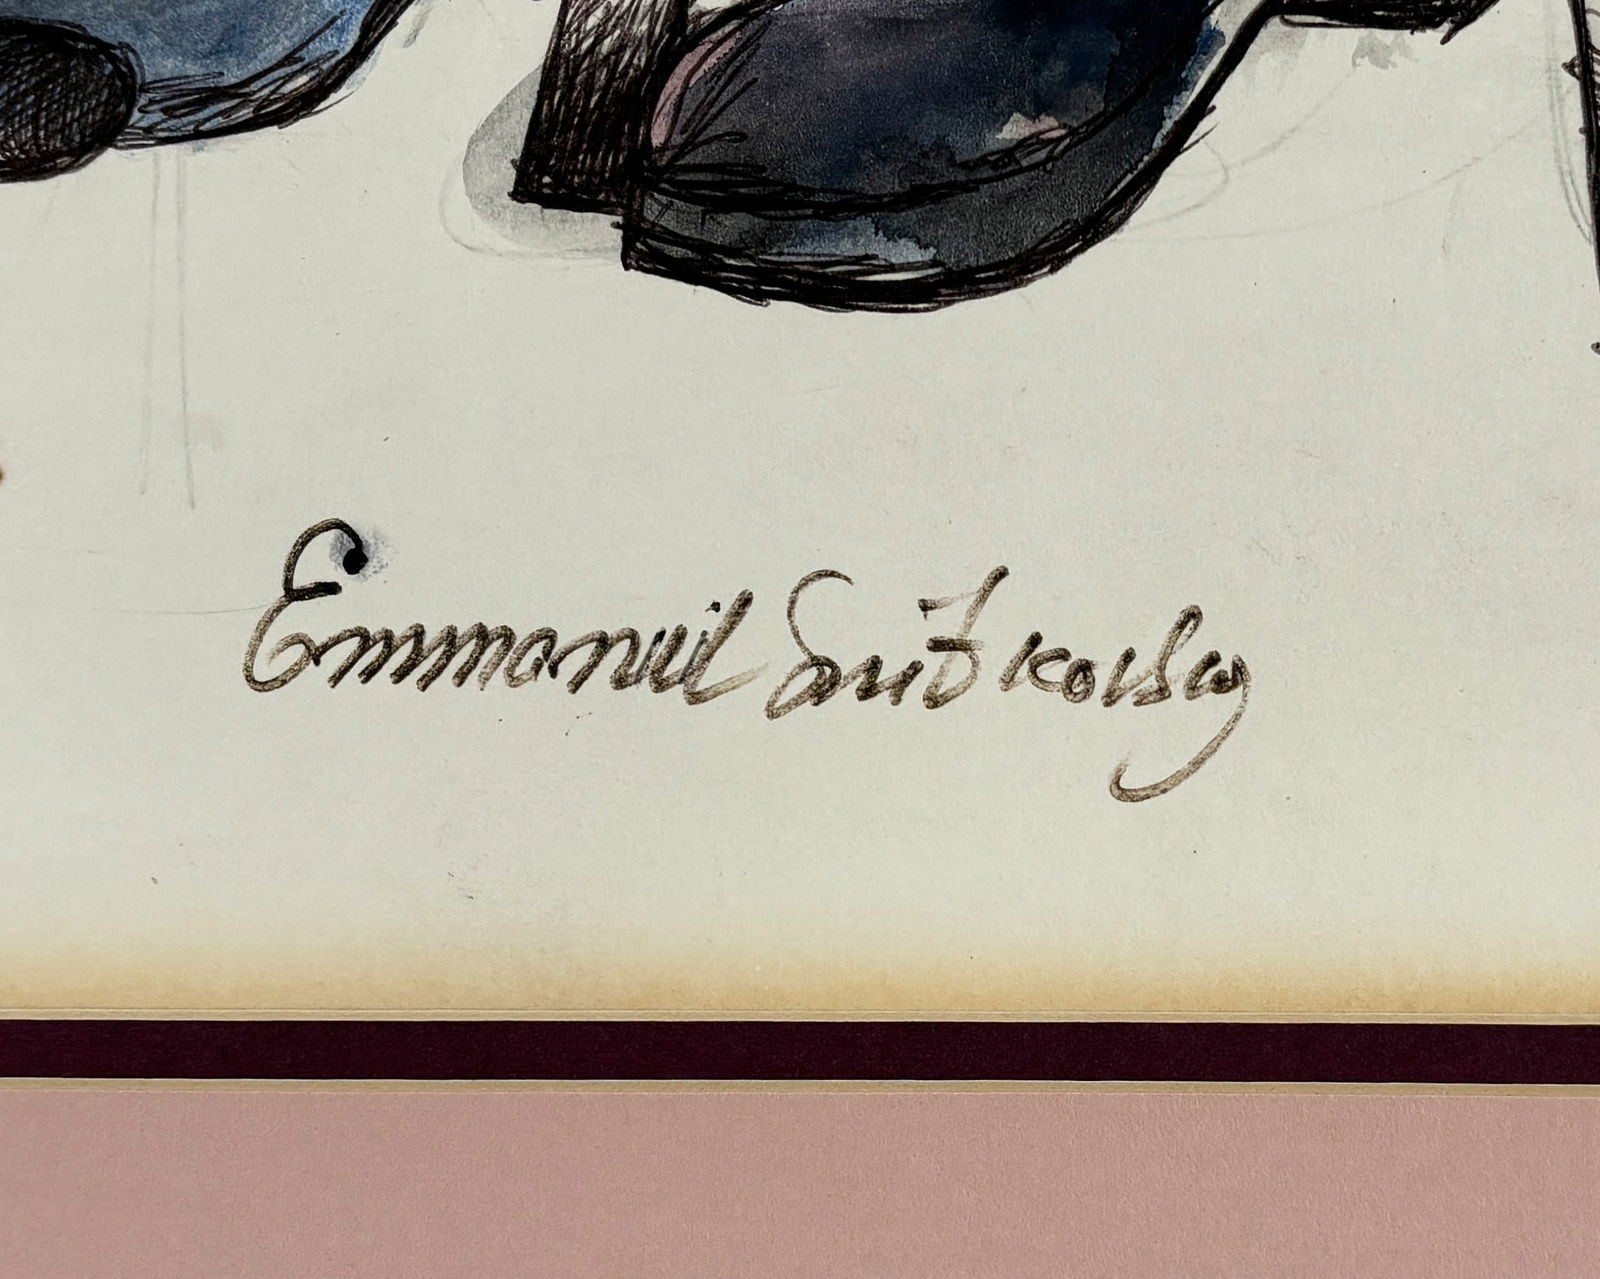 Emmanuil Snitkovsky